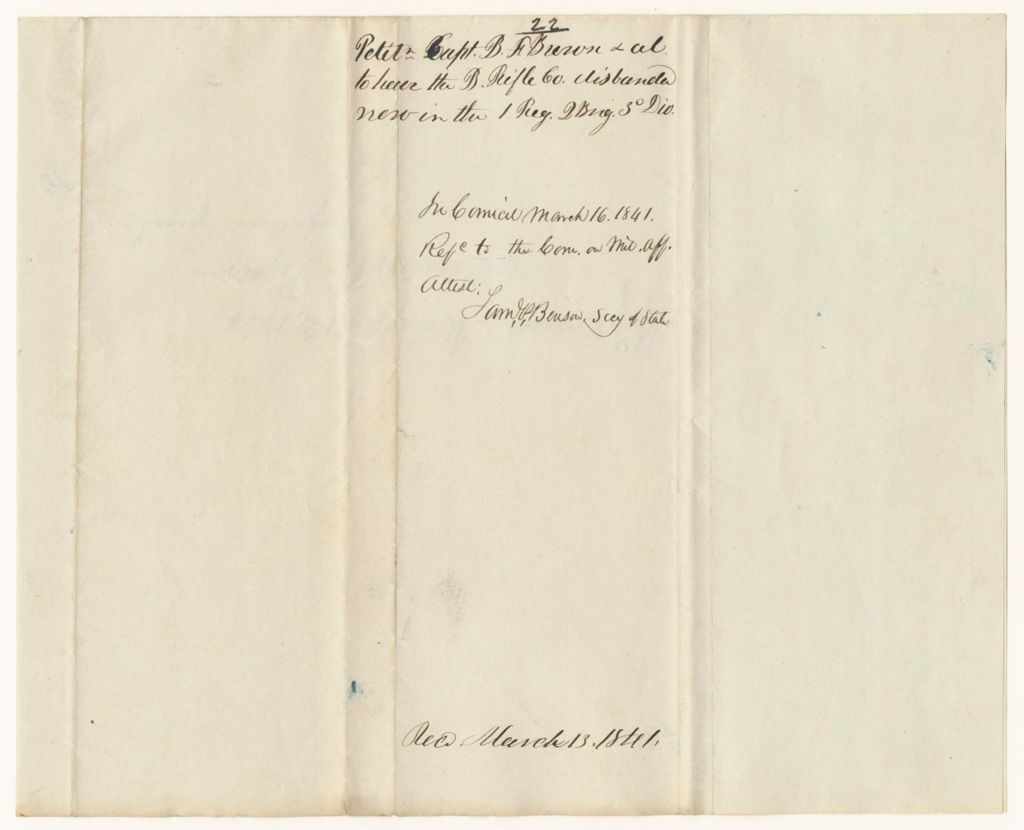 22
Petitn Capt. B. F. Buron & al.
to have the B. Rifle Co. disbanded
now in the 1 Reg. 2 Brig. 3d Div.
In Council March 16. 1841.
Refd to the Com. on Mil. Aff.
Attest:
Saml. P. Benson, Secy of State
Recd March 13. 1841.